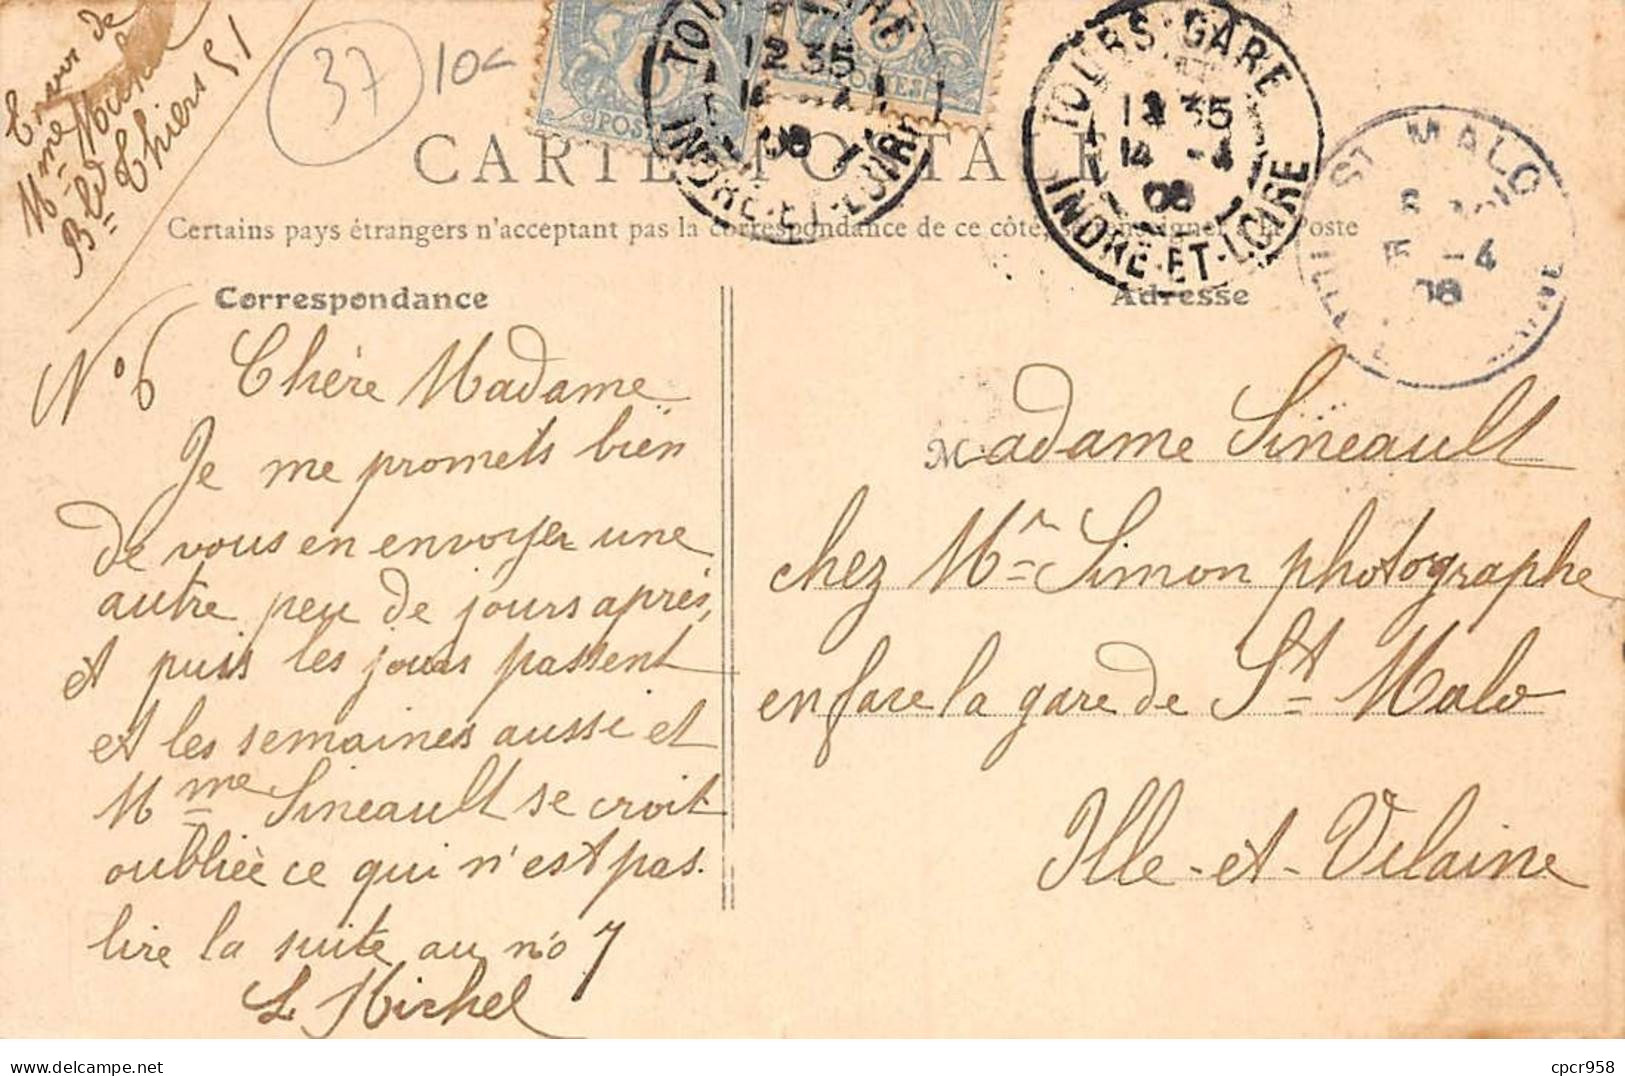 Envoi de
Mme Michel
Bld Thiers 51
37
10c
POSTES
TOURS-GARE
12 35
14 -4
08
INDRE-ET-LOIRE
TOURS-GARE
12 35
14 -4
08
INDRE-ET-LOIRE
ST MALO
15 -4
08
CARTE POSTALE
Certains pays étrangers n'acceptant pas la correspondance de ce côté, se renseigner à la Poste
Correspondance
Adresse
N° 6 Chère Madame
Je me promets bien
de vous en envoyer une
autre peu de jours après,
et puis les jours passent
et les semaines aussi et
Mme Sineault se croit
oubliée ce qui n'est pas.
lire la suite au n° 7
L Michel
Madame Sineault
chez Mr Simon photographe
en face la gare de St Malo
Ille-et-Vilaine
cpcr958